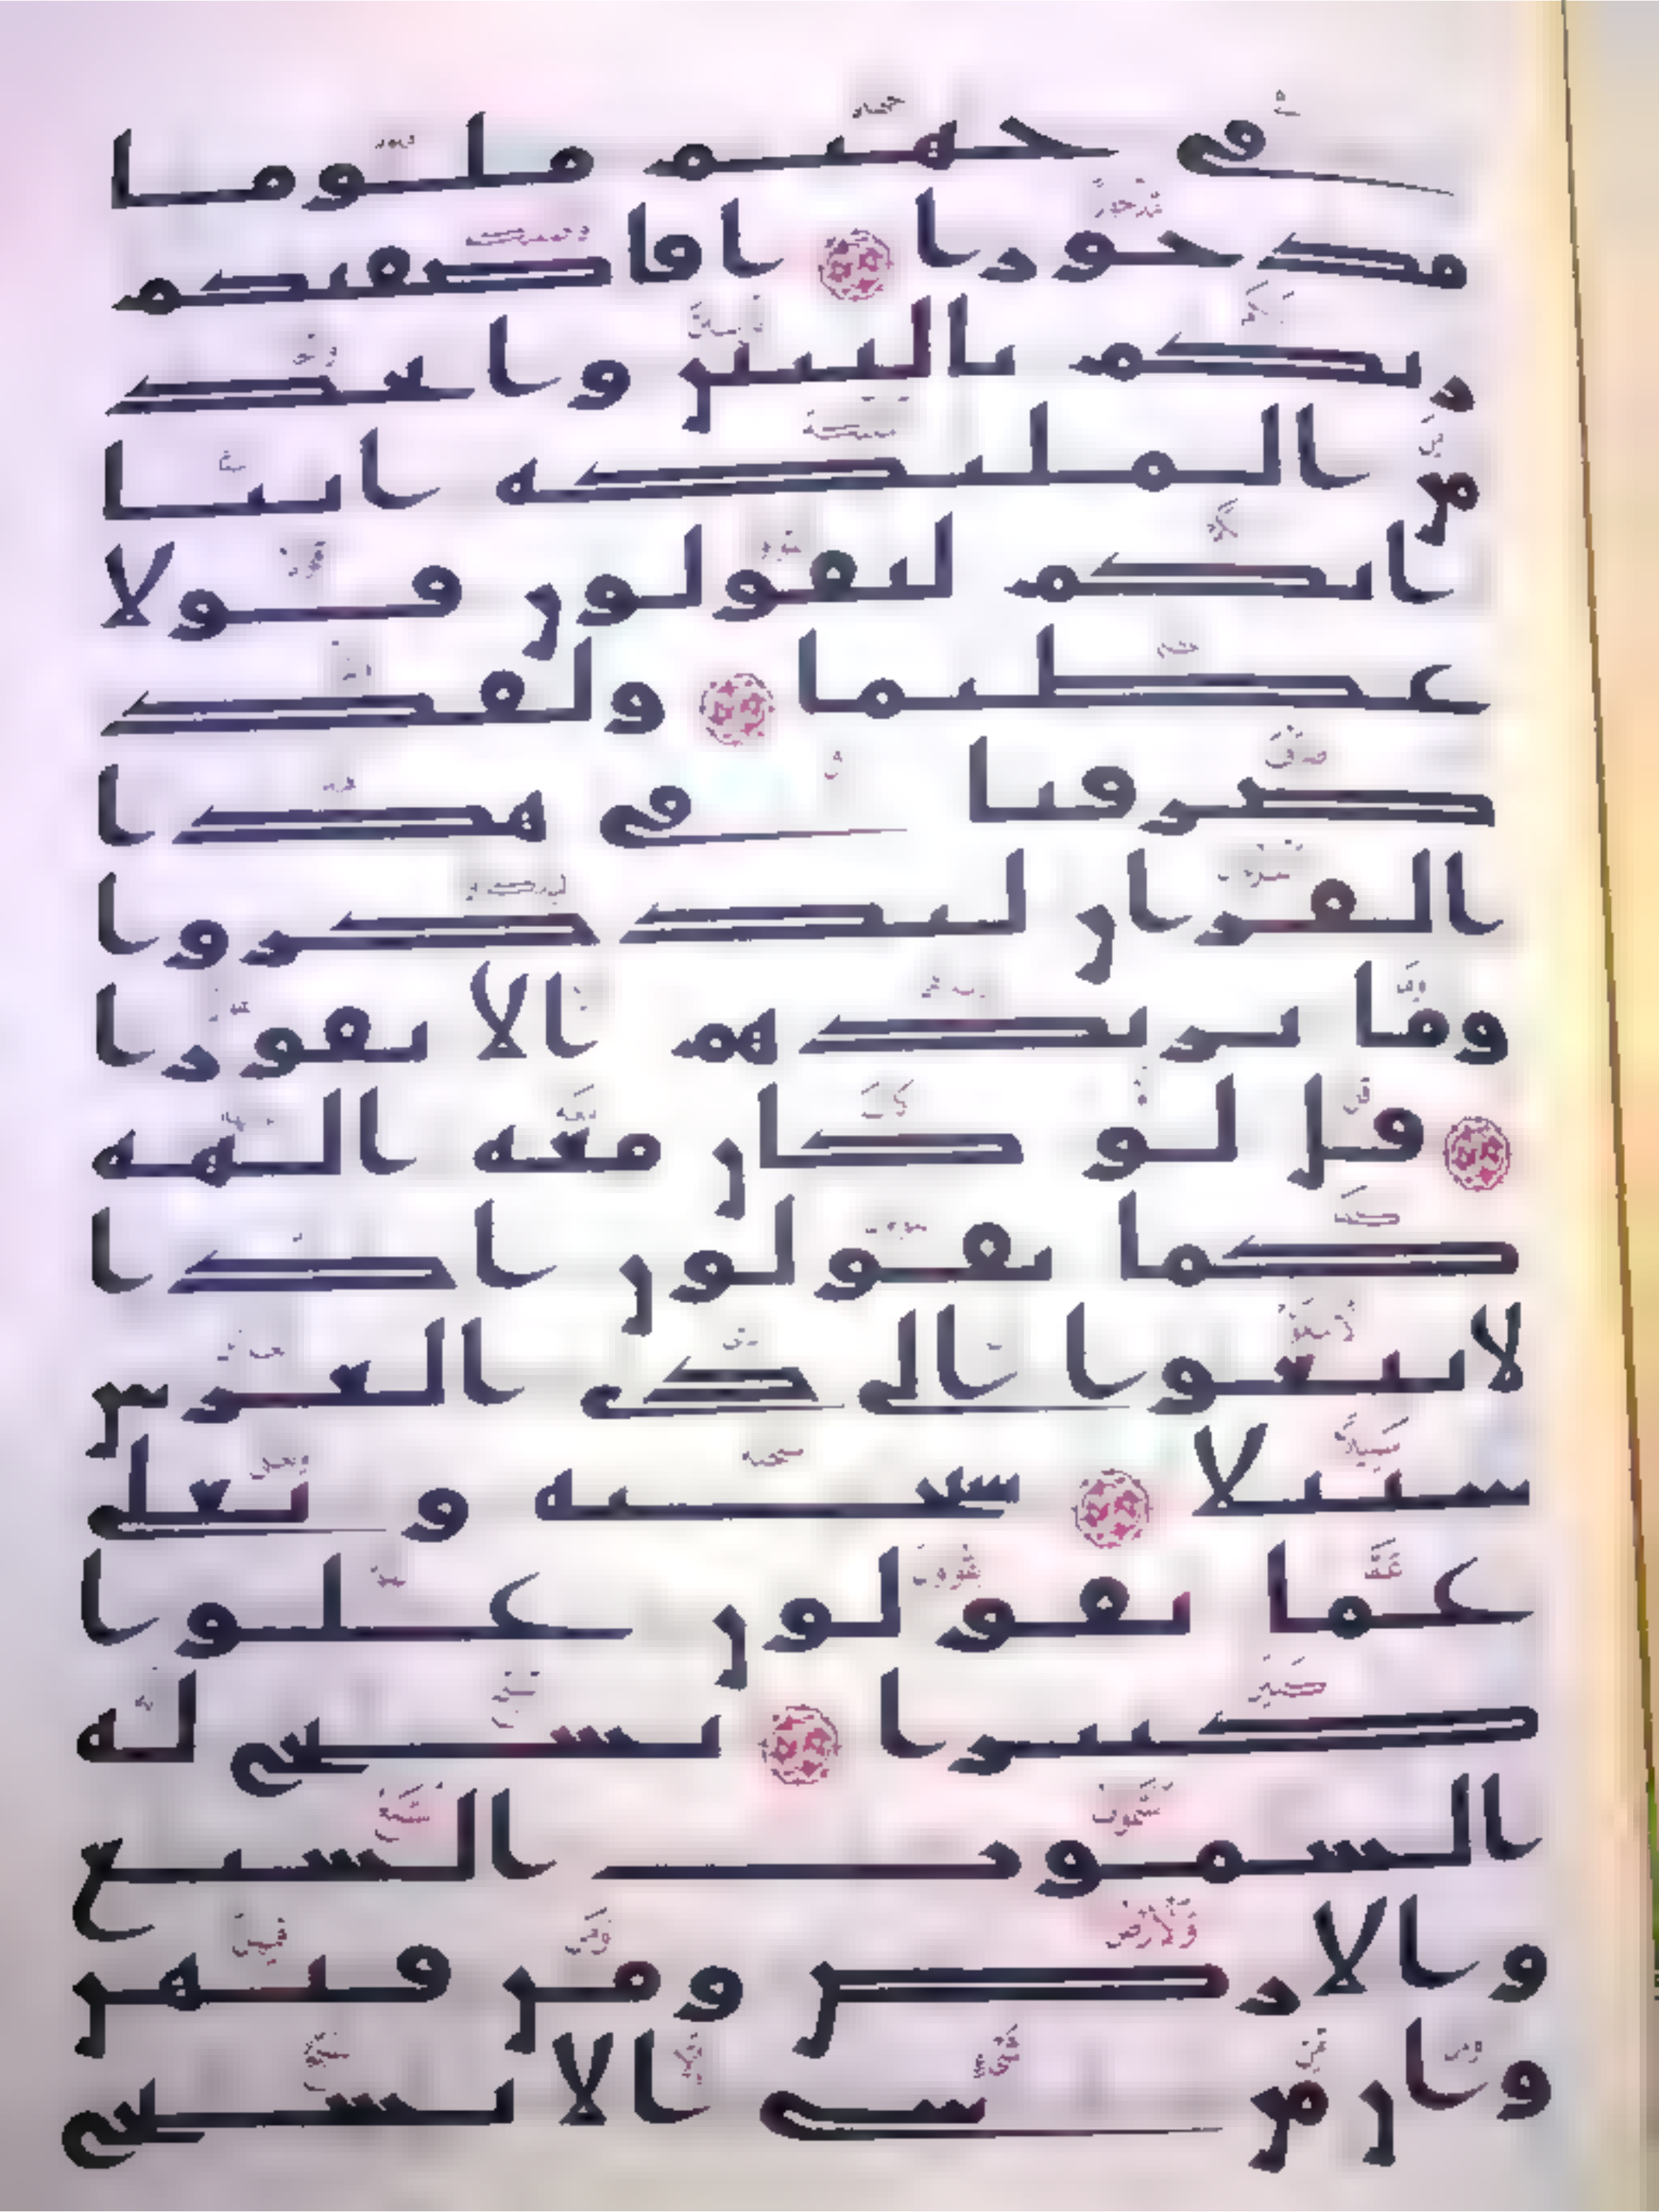 في جهنم ملوما
مدحورا افاصفيكم
ربكم بالبنين واتخذ
من الملئكة انثا
انكم لتقولون قولا
عظيما ولقد
صرفنا في هذا
القران ليذكروا
وما يزيدهم الا نفورا
قل لو كان معه الهة
كما يقولون اذا
لابتغوا الى ذي العرش
سبيلا سبحنه و تعلى
عما يقولون علوا
كبيرا تسبح له
السموت السبع
والارض ومن فيهن
وان من شي الا يسبح